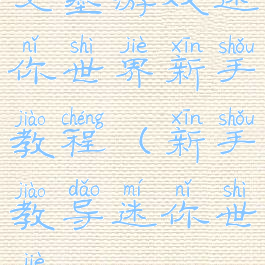 游戏迷
nǐ shì jiè xīn shǒu
你世界新手
jiào chéng xīn shǒu
教程（新手
jiào dǎo mí nǐ shì
教导迷你世
jiè